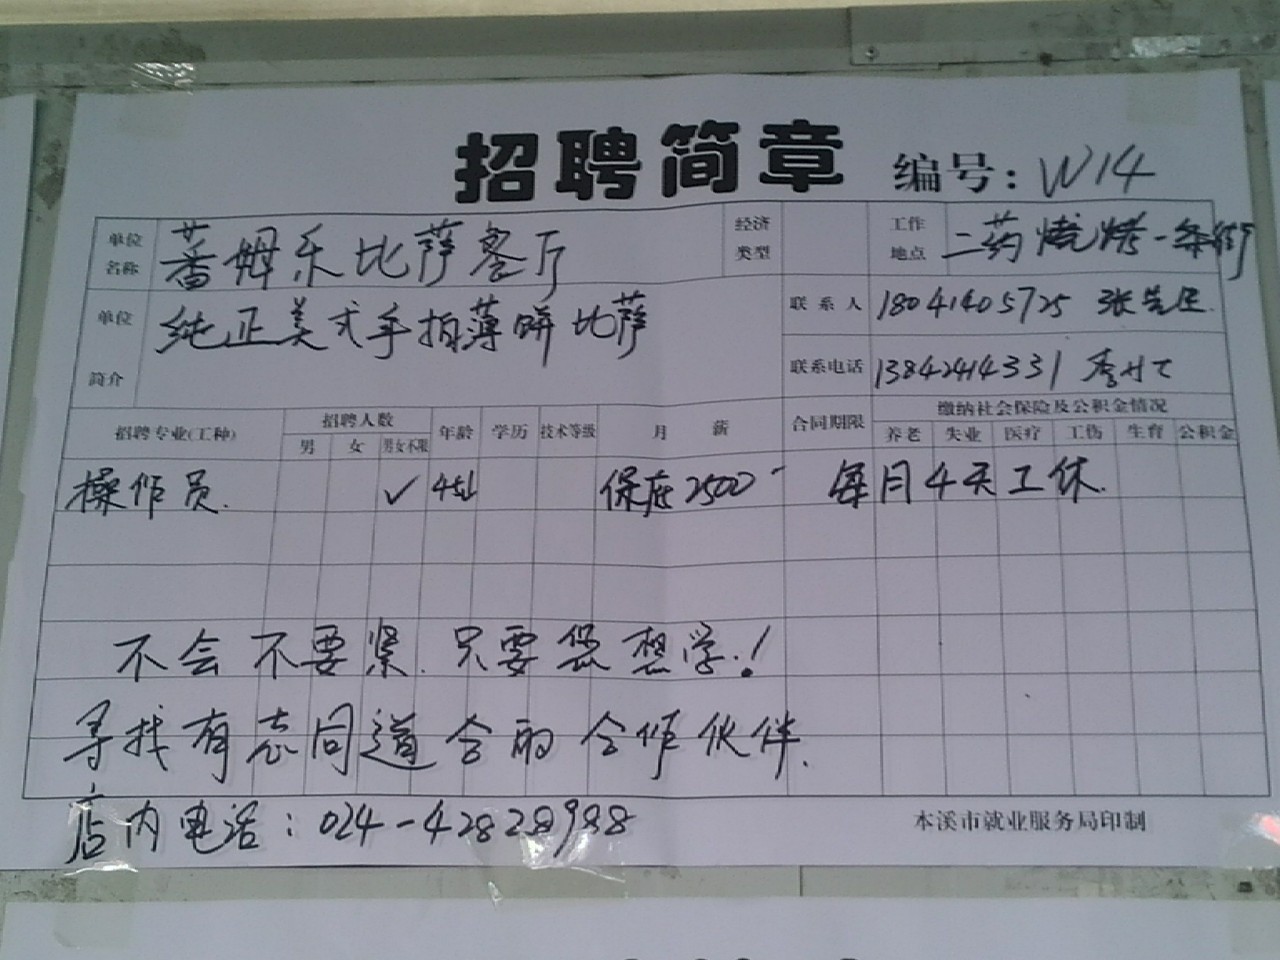 招聘简章 编号: W14
单位名称 蕃姆乐比萨客厅 经济类型 工作地点 二药烧烤一条街
单位简介 纯正美式手拍薄饼比萨 联系人 18041405725 张先生
联系电话 13842414331
招聘专业(工种) 招聘人数 年龄 学历 技术等级 月薪 合同期限 缴纳社会保险及公积金情况
男 女 男女不限 养老 失业 医疗 工伤 生育 公积金
操作员. ✓ 保底2500 每月4天工休.
不会不要紧.只要您想学.!
寻找有志同道合的合作伙伴.
店内电话: 024-42828988
本溪市就业服务局印制